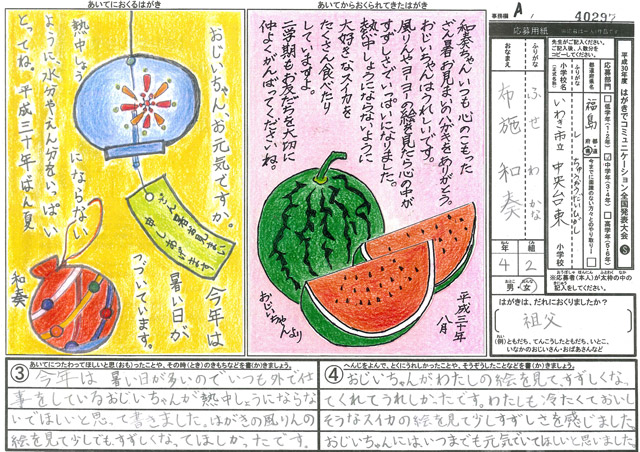 あいてにおくるはがき
おじいちゃん、お元気ですか。
今年は
暑い日が
つづいています。
熱中しょうにならない
ように、水分やえん分をいっぱい
とってね。平成三十年ばん夏
和奏
さん暑お見まい
申しあげます
あいてからおくられてきたはがき
和奏ちゃん、いつも心のこもった
ざん暑お見まいのハガキをありがとう。
おじいちゃんはうれしいです。
風りんやヨーヨーの絵を見たら心の中が
すずしさでいっぱいになりました。
熱中しょうにならないように
大好きなスイカを
たくさん食べたり
していますよ。
二学期もお友だちを大切に
仲よくがんばってくださいね。
平成三十年
八月
おじいちゃんより
事務欄
A
40297
応募用紙
平成30年度 はがきでコミュニケーション全国発表大会
応募部門
低学年(1・2年)
中学年(3・4年)
高学年(5・6年)
都道府県名
福島
小学校名
(正式名称)
いわき市立 中央台東
小学校
ふりがな
おなまえ
ふせ わかな
布施 和奏
年
4
組
2
男・女
はがきは、だれにおくりましたか?
祖父
(例)ともだち、てんこうしたともだち、いとこ、
いなかのおじいさん・おばあさんなど
③
あいてにつたわってほしいと思(おも)ったことや、その時(とき)のきもちなどを書(か)きましょう。
今年は暑い日が多いのでいつも外で仕
事をしているおじいちゃんが熱中しょうにならな
いでほしいと思って書きました。はがきの風りんの
絵を見て少しでもすずしくなってほしかったです。
④
へんじをよんで、とくにうれしかったことや、そうぞうしたことなどを書(か)きましょう。
おじいちゃんがわたしの絵を見て、すずしくなっ
てくれてうれしかったです。わたしも冷たくておいし
そうなスイカの絵を見て少しすずしさを感じました。
おじいちゃんには、いつまでも元気でいてほしいと思いました。